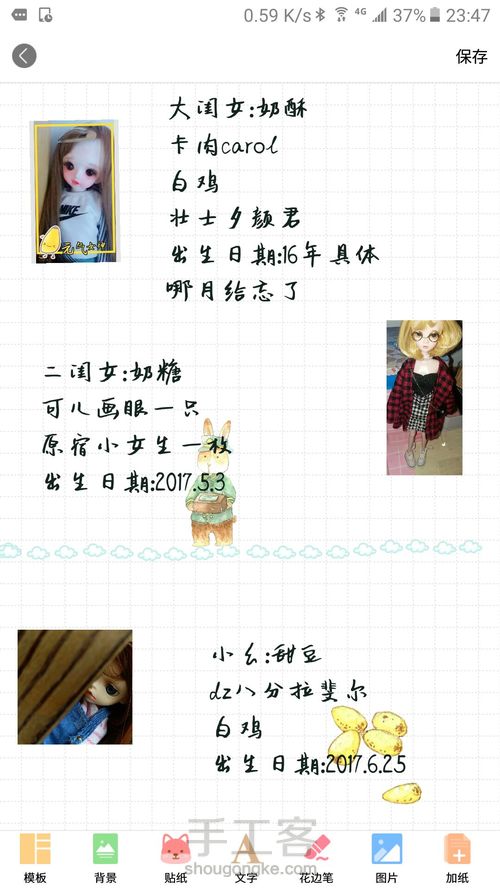 0.59 K/s 4G 37% 23:47
保存
大闺女:奶酥
卡肉carol
白鸡
壮士夕颜君
出生日期:16年具体
哪月给忘了
NIKE
元气女神
二闺女:奶糖
可儿画眼一只
原宿小女生一枚
出生日期:2017.5.3
小幺:甜豆
dz八分拉斐尔
白鸡
出生日期:2017.6.25
手工客
shougongke.com
模板 背景 贴纸 文字 花边笔 图片 加纸